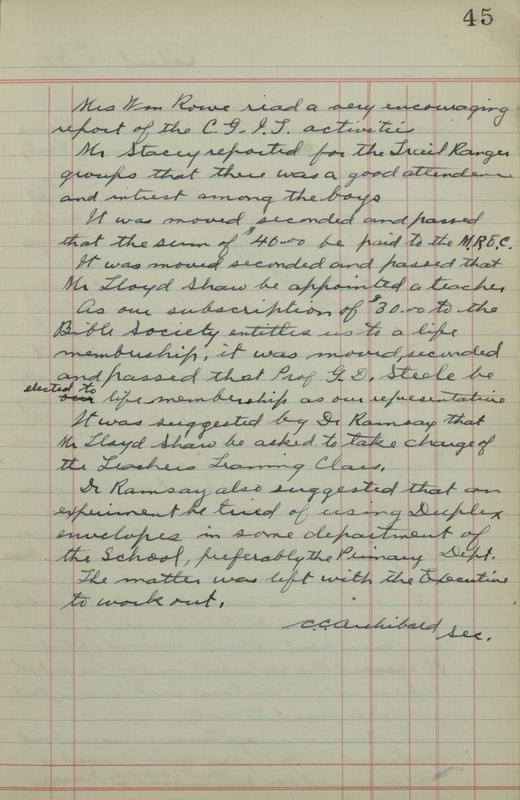 45
Mrs Wm Rowe read a very encouraging
report of the C.G.I.T. activities
Mr Stacey reported for the Trail Ranger
groups that there was a good attendence
and intrest among the boys
It was moved seconded and passed
that the sum of $40.00 be paid to the M.R.E.C.
It was moved seconded and passed that
Mr Lloyd Shaw be appointed a teacher
As our subscription of $30.00 to the
Bible Society entitles us to a life
membership, it was moved, seconded
and passed that Prof G.D. Steele be
elected to
our life membership as our representative
It was suggested by Dr Ramsay that
Mr Lloyd Shaw be asked to take charge of
the Teachers Training Class.
Dr Ramsay also suggested that an
experiment be tried of using Duplex
envelopes in some department of
the School, preferably the Primary Dept.
The matter was left with the Executive
to work out.
C.C. Archibald Sec.